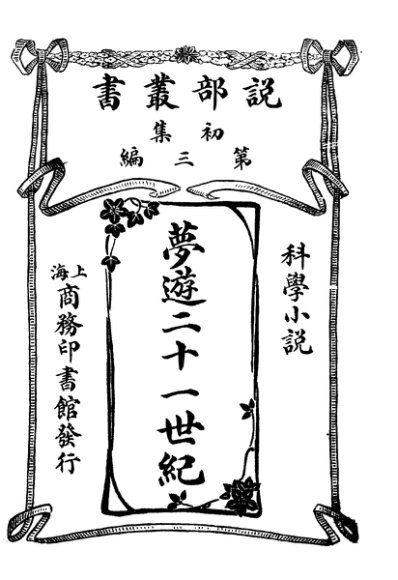 說部叢書
初集
第三編
科學小説
夢遊二十一世紀
上海
商務印書館發行